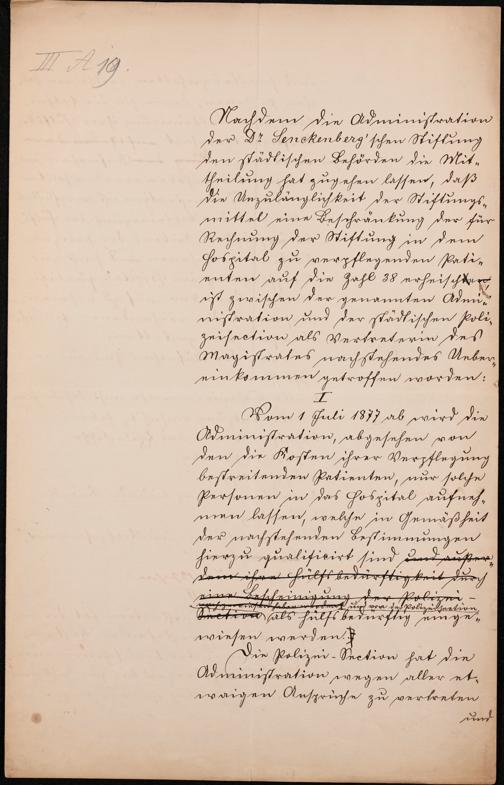 III A 19.
Nachdem die Administration
der Dr. Senckenberg'schen Stiftung
den städtischen Behörden die Mit-
theilung hat zugehen lassen, daß
die Unzulänglichkeit der Stiftungs-
mittel eine Beschränkung der für
Rechnung der Stiftung in dem
Hospital zu verpflegenden Pati-
enten auf die Zahl 38 erheische
ist zwischen der genannten Admi-
nistration und der städtischen Poli-
zeisection als Vertreterin des
Magistrates nachstehendes Ueber-
einkommen getroffen worden:
I
Vom 1 Juli 1877 ab wird die
Administration, abgesehen von
den die Kosten ihrer Verpflegung
bestreitenden Patienten, nur solche
Personen in das Hospital aufneh-
men lassen, welche in Gemäßheit
der nachstehenden Bestimmungen
hierzu qualificirt sind und außer-
dem ihre Hülfsbedürftigkeit durch
eine Bescheinigung der Polizei-
und von der Polizeisection
Section als hülfsbedürftig einge-
wiesen werden.
Die Polizei-Section hat die
Administration wegen aller et-
waigen Ansprüche zu vertreten
und